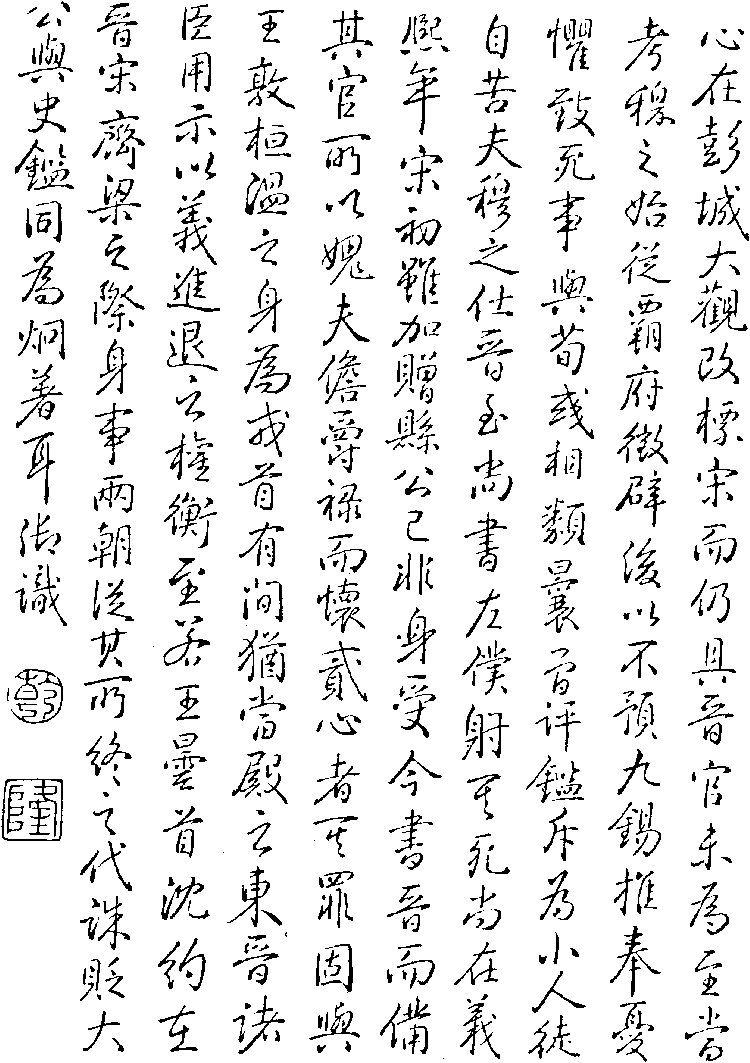 心在彭城大觀改標宋而仍具晉官未為至當
考穆之始從霸府徵辟後以不預九錫推奉憂
懼致死事與荀彧相類曩曾評鑑斥為小人徒
自苦夫穆之仕晉至尚書左僕射其死尚在義
熙年宋初雖加贈縣公已非身受今書晉而備
其官所以媿夫儋爵祿而懷貳心者其罪固與
王敦桓溫之身為戎首有間猶當殿之東晉諸
臣用示以義進退之權衡至若王曇首沈約在
晉宋齊梁之際身事兩朝從其所終之代誅貶大
公與史鑑同為炯著耳御識
乾
隆